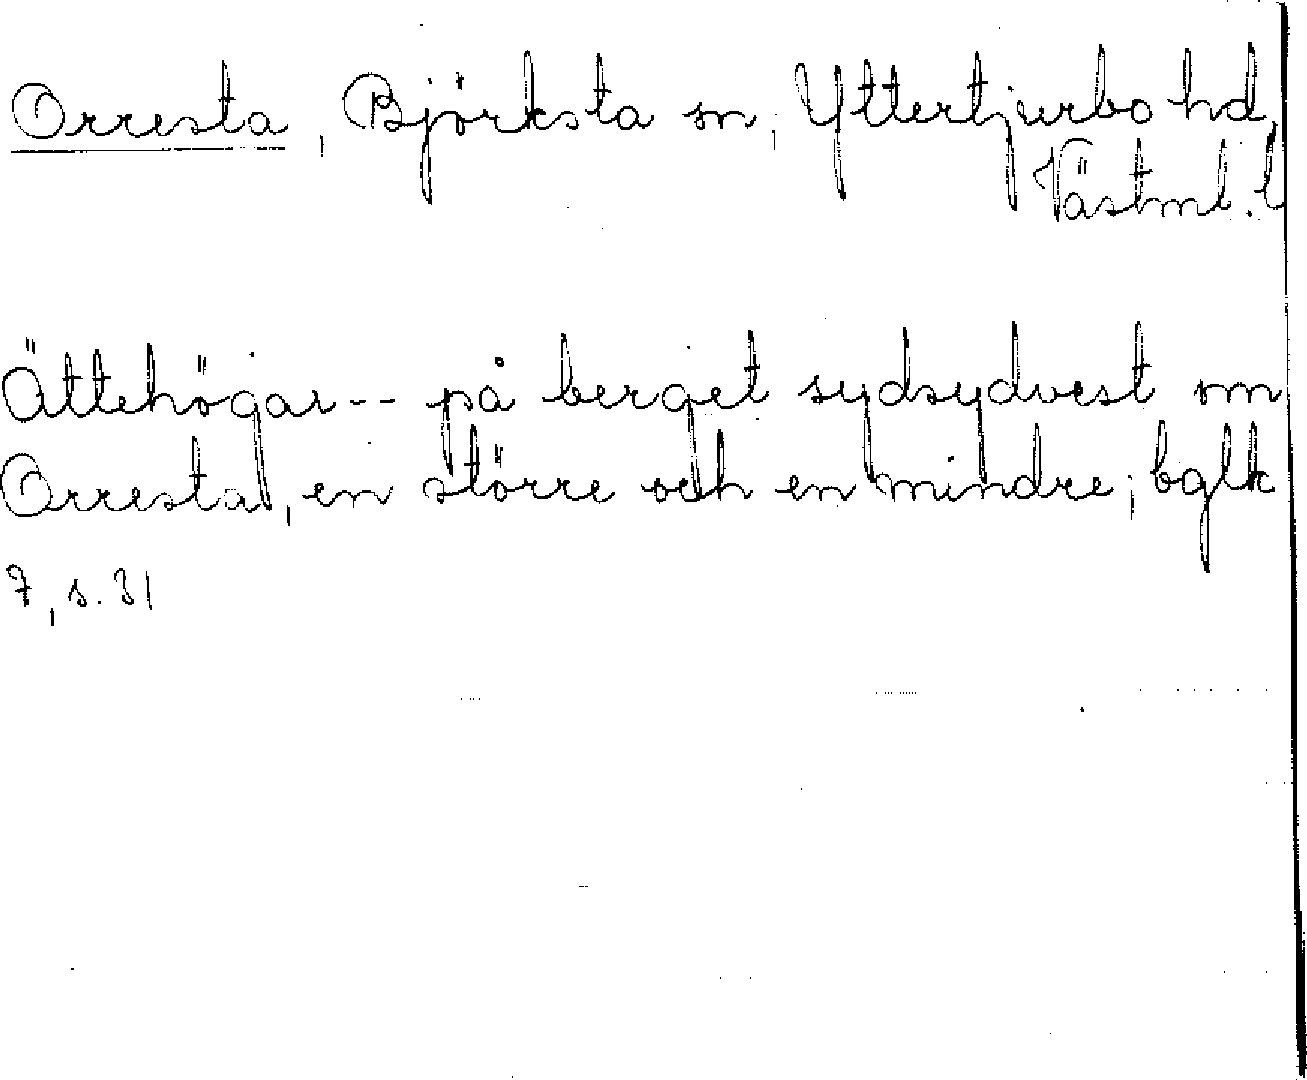 Orresta, Björksta sn, Yttertjurbo hd,
Västml. l
Ättehögar-- på berget sydsydvest om
Orresta, en större och en mindre; bglk
7, s. 31